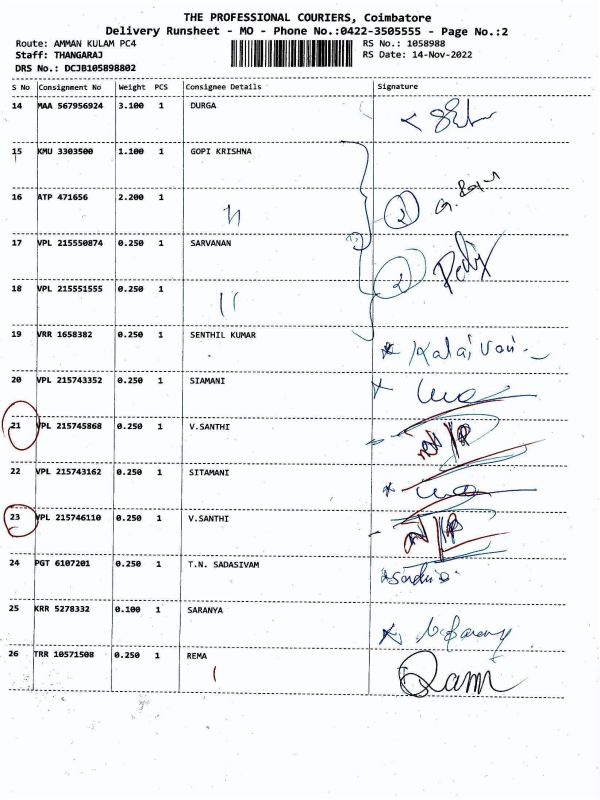 THE PROFESSIONAL COURIERS, Coimbatore
Delivery Runsheet - MO - Phone No.:0422-3505555 - Page No.:2
Route: AMMAN KULAM PC4 RS No.: 1058988
Staff: THANGARAJ RS Date: 14-Nov-2022
DRS No.: DCJB105898802
S No Consignment No Weight PCS Consignee Details Signature
14 MAA 567956924 3.100 1 DURGA
15 KMU 3303500 1.100 1 GOPI KRISHNA
16 ATP 471656 2.200 1
2
17 VPL 215550874 0.250 1 SARVANAN
2
18 VPL 215551555 0.250 1
19 VRR 1658382 0.250 1 SENTHIL KUMAR
Kalaivani
20 VPL 215743352 0.250 1 SIAMANI
21 VPL 215745868 0.250 1 V.SANTHI
22 VPL 215743162 0.250 1 SITAMANI
23 VPL 215746110 0.250 1 V.SANTHI
24 PGT 6107201 0.250 1 T.N. SADASIVAM
25 KRR 5278332 0.100 1 SARANYA
26 TRR 10571508 0.250 1 REMA